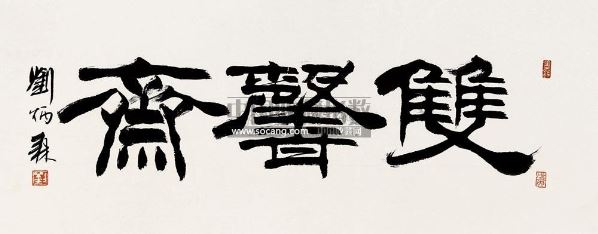 雙馨齋
劉炳森
www.socang.com